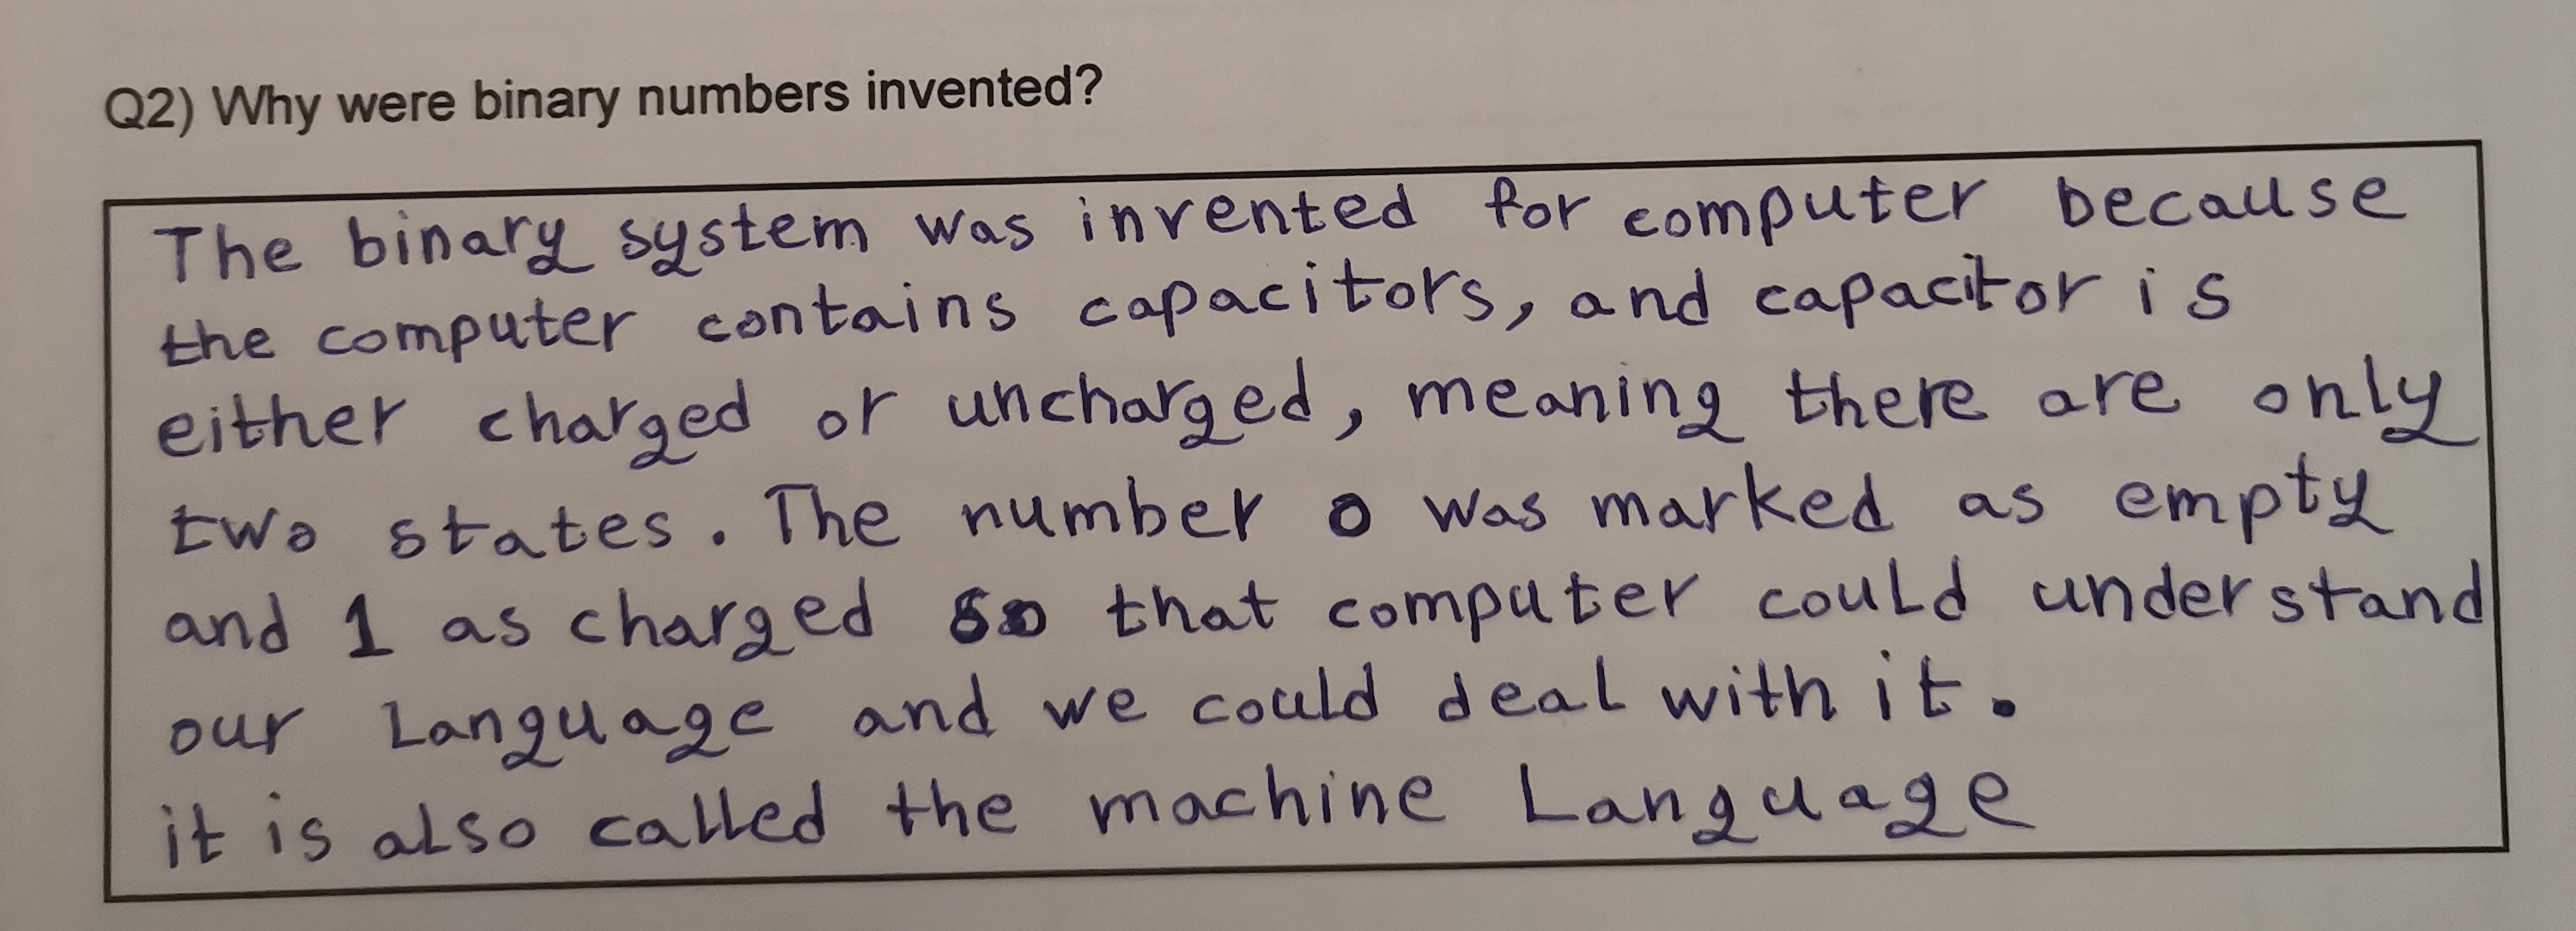 Q2) Why were binary numbers invented?
The binary system was invented for computer because
the computer contains capacitors, and capacitor is
either charged or uncharged, meaning there are only
two states. The number 0 was marked as empty
and 1 as charged so that computer could understand
our Language and we could deal with it.
it is also called the machine Language